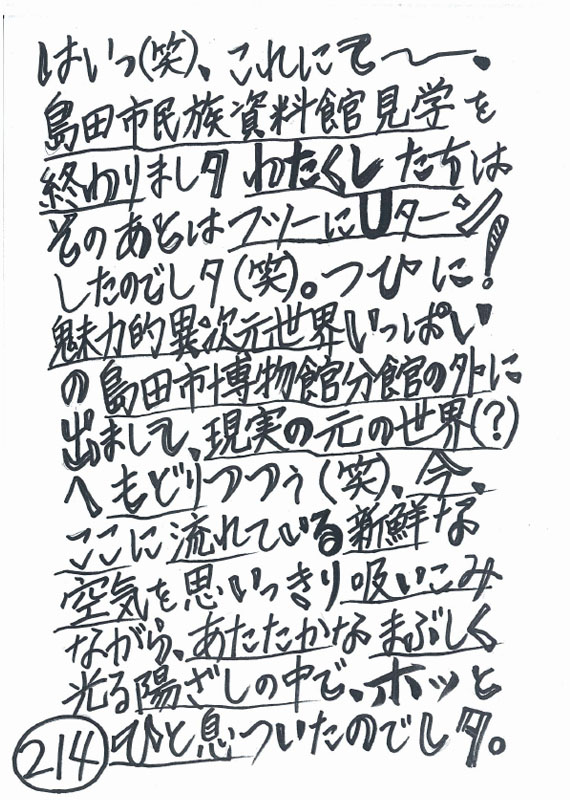 はいっ(笑)、これにて〜〜、
島田市民族資料館見学を
終わりましタわたくしたちは
そのあとはフツーにUターン
したのでしタ(笑)。つひに!
魅力的異次元世界いっぱい
の島田市博物館分館の外に
出まして、現実の元の世界(?)
へもどりつつぅ(笑)、今、
ここに流れている新鮮な
空気を思いっきり吸いこみ
ながら、あたたかなまぶしく
光る陽ざしの中で、ホッと
214 ひと息ついたのでしタ。